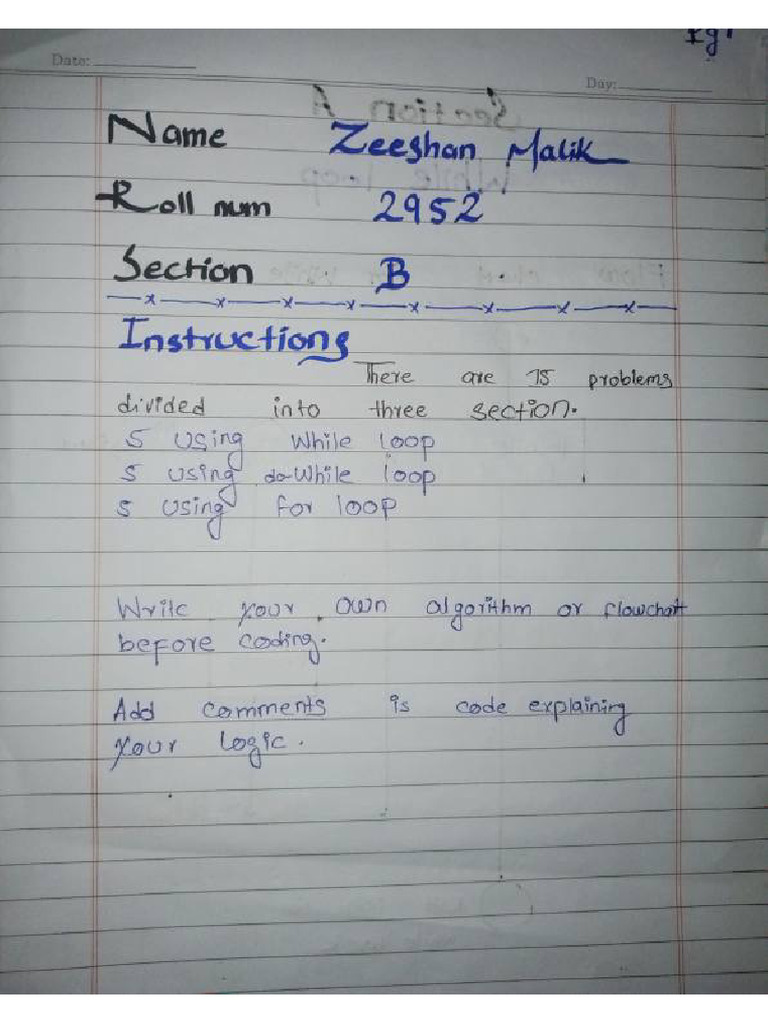 Pg 1
Date:
Day:
Name Zeeshan Malik
Roll num 2952
Section B
Instructions
There are 15 problems
divided into three section.
5 using While loop
5 using do-While loop
5 using for loop
Write your own algorithm or flowchart
before coding.
Add comments is code explaining
your logic.